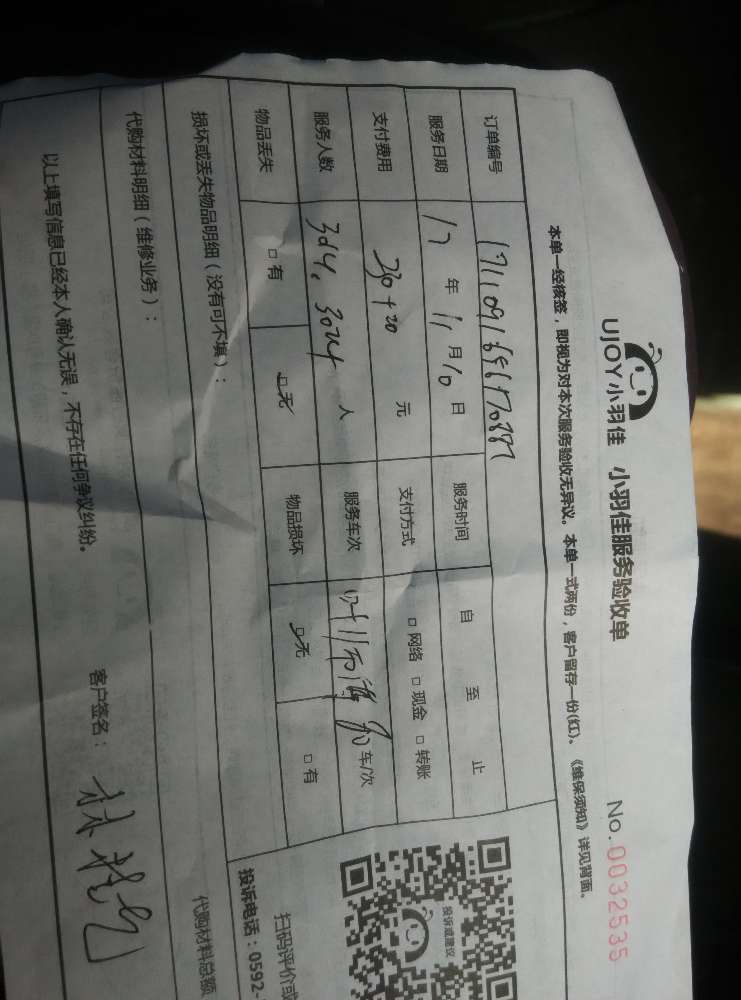 UJOY小羽佳 小羽佳服务验收单 No. 0032535
本单一经核签，即视为对本次服务验收无异议。本单一式两份，客户留存一份(红)、《维保须知》详见背面。
订单编号
服务日期 17 年 11 月 10 日 服务时间 自 至 止
支付费用 230+20 元 支付方式 □ 网络 □ 现金 □ 转账
服务人数 人 服务车次 车/次
物品丢失 □ 有 □ 无 物品损坏 □ 无 □ 有
损坏或丢失物品明细（没有可不填）：
代购材料明细（维修业务）：
代购材料总额
以上填写信息已经本人确认无误，不存在任何争议纠纷。
客户签名：
投诉或建议
扫码评价或
投诉电话：0592-